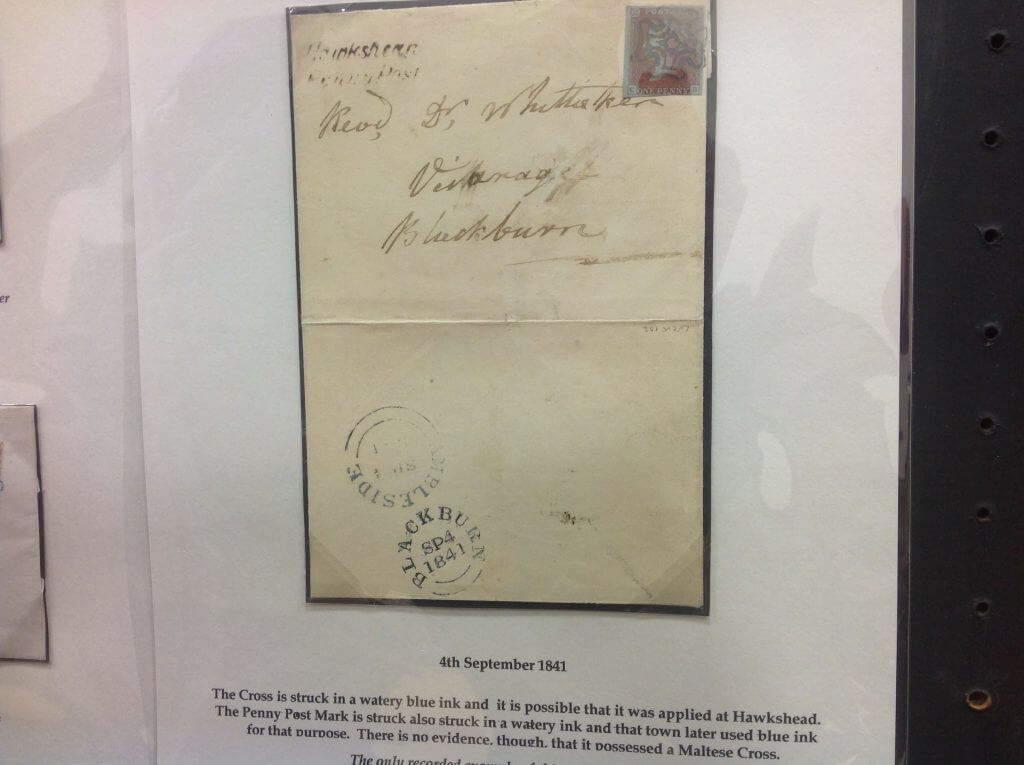 Penny Post
POSTAGE
ONE PENNY
Revd, Dr, Whittaker
Vicarage
Blackburn
AMBLESIDE
BLACKBURN
SP4
1841
er
4th September 1841
The Cross is struck in a watery blue ink and it is possible that it was applied at Hawkshead.
The Penny Post Mark is struck also struck in a watery ink and that town later used blue ink
for that purpose. There is no evidence, though, that it possessed a Maltese Cross.
The only recorded example of